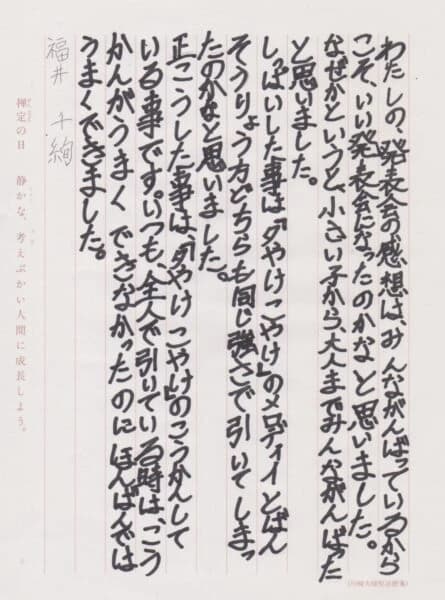 わたしの、発表会の感想は、みんながんばっているから
こそ、いい発表会になったのかなと思いました。
なぜかというと、小さい子から、大人までみんながんばった
と思いました。
しっぱいした事は、「夕やけこやけ」のメロディイとばん
そうりょう方どちらも同じ強さで引いてしまっ
たのかなと思いました。
正こうした事は、「夕やけこやけ」のこうかんして
いる事です。いつも、全人で引いている時は、こう
かんがうまくできなかったのにほんばんでは
うまくできました。
福井 千絢
禅定の日 静かな、考えぶかい人間に成長しよう。